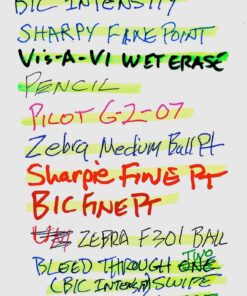 BIC INTENSITY
SHARPY FINE POINT
VIS-A-VI WET ERASE
PENCIL
PILOT G-2-07
Zebra Medium Ball Pt
Sharpie FINE Pt
BIC FINE Pt
ZEBRA F301 BALL
TWO
BLEED THROUGH ONE
(BIC INTENSITY) SWIPE